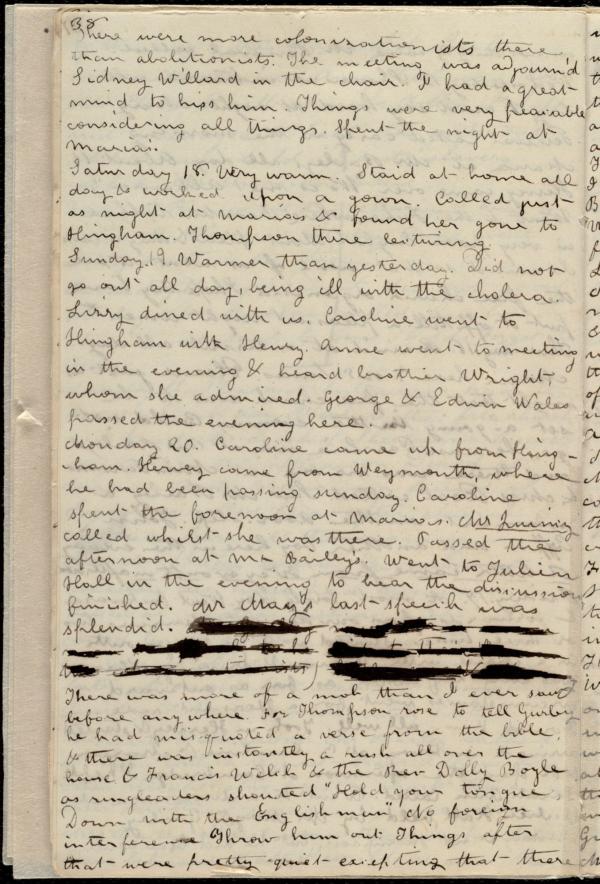 38
There were more colonizationists there
than abolitionists. The meeting was adjourn'd
Sidney Willard in the chair. I had a great
mind to hiss him. Things were very peacable
considering all things. Spent the night at
Maria's.
Saturday 18. Very warm. Staid at home all
day & worked upon a gown. Called just
as night at Marias & found her gone to
Hingham. Thompson there lecturing.
Sunday. 19. Warmer than yesterday. Did not
go out all day, being ill with the cholera.
Lizzy dined with us. Caroline went to
Hingham with Henry. Anne went to meeting
in the evening & heard brother Wright,
whom she admired. George & Edwin Wales
passed the evening here.
Monday 20. Caroline came up from Hing-
ham. Hervey came from Weymouth, where
he had been passing sunday. Caroline
spent the forenoon at Marias. Mr Quincy
called whilst she was there. Passed the
afternoon at Mr Bailey's. Went to Julien
Hall in the evening to hear the discussion
finished. Mr May's last speech was
splendid.
There was more of a mob than I ever saw
before anywhere. For Thompson rose to tell Gurley
he had misquoted a verse from the bible,
& there was instantly a rush all over the
house & Francis Welch & the Rev Dolly Boyle
as ringleaders shouted "Hold your tongue
Down with the Englishman" No foreign
interference Throw him out Things after
that were pretty quiet excepting that there